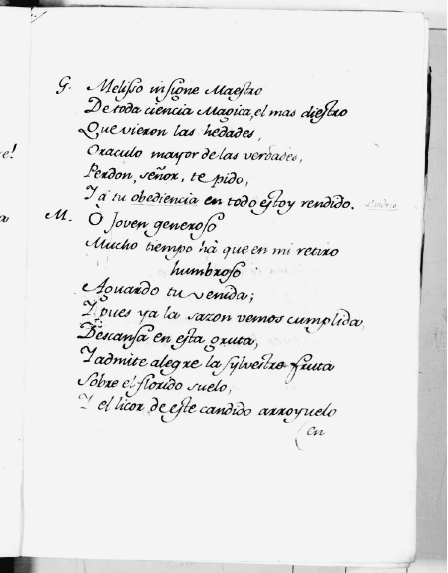 G. Melisso insigne Maestro
De toda ciencia Magica, el mas diestro
Que vieron las hedades,
Oraculo mayor de las verdades,
Perdon, señor, te pido,
Y à tu obediencia en todo estoy rendido.
M. Ò Joven generoso
Mucho tiempo hà que en mi retiro
humbroso
Aguardo tu venida;
Y pues ya la sazon vemos cumplida,
Descansa en esta gruta,
Y admite alegre la sylvestre fruta
Sobre el florido suelo,
Y el licor de este candido arroyuelo
(en